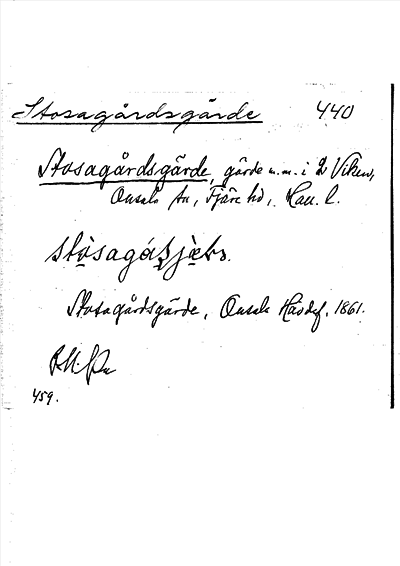 Stosagårdsgärde 440
Stosagårdsgärde, gärde n.m. i 2 Viken,
Onsala sn, Fjäre hd, Hall. l.
Stosagårdsgärde, Onsala Hasdf, 1861.
459.